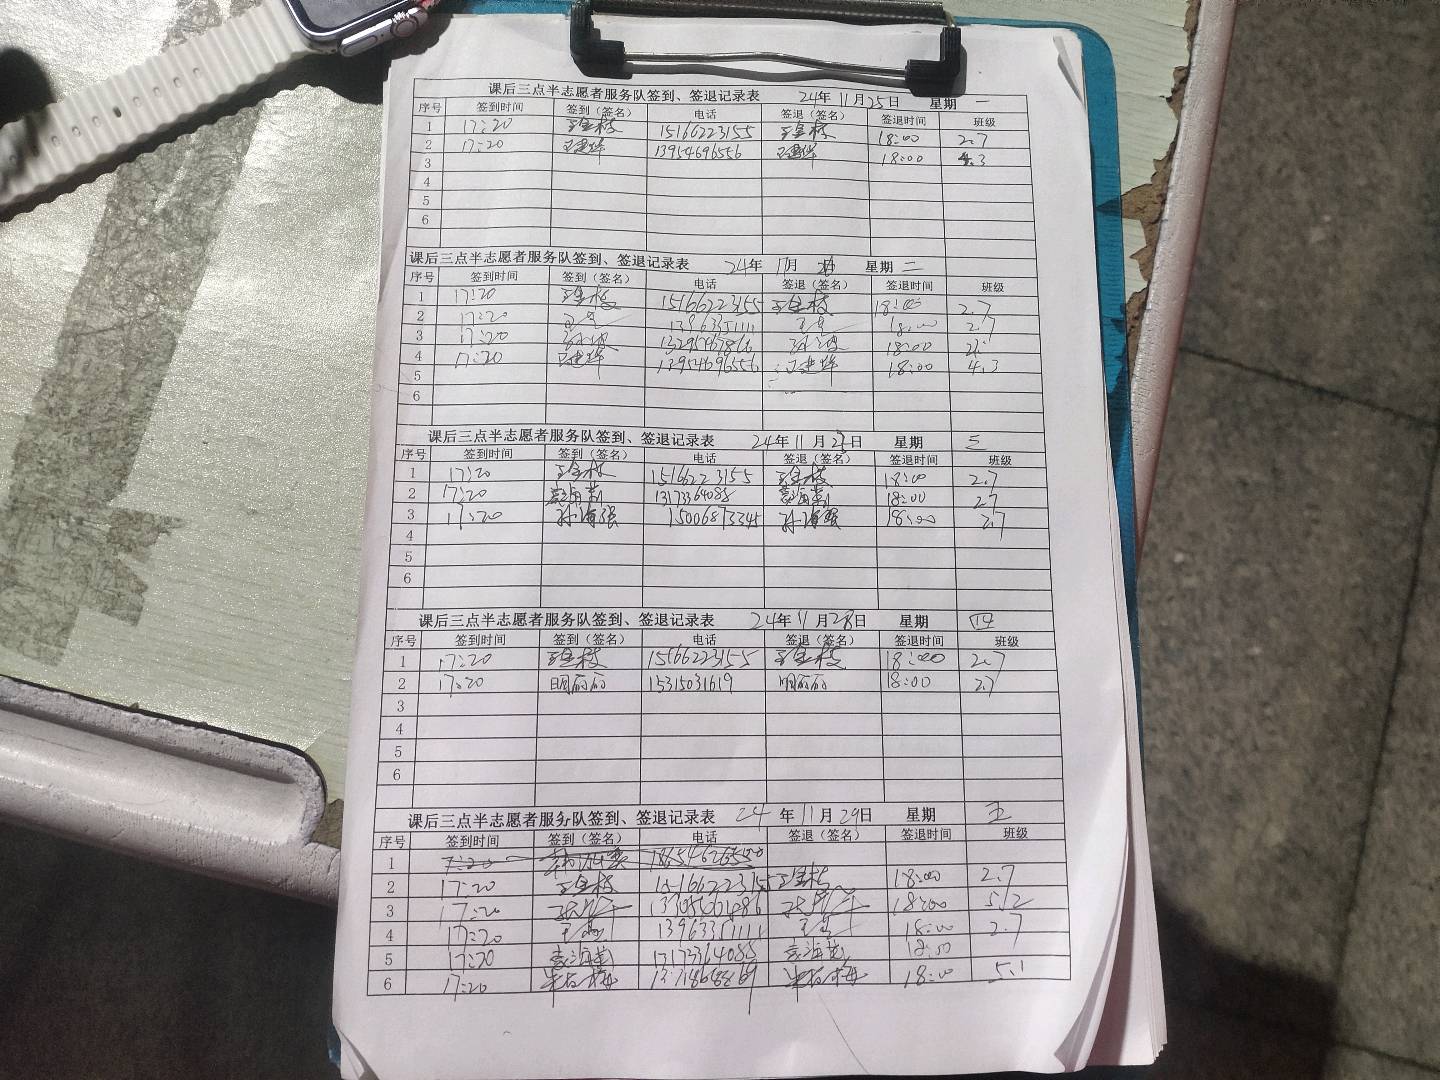 课后三点半志愿者服务队签到、签退记录表 24年 11月25日 星期 一
序号 签到时间 签到（签名） 电话 签退（签名） 签退时间 班级
1 17:20 15166223155 18:00 2.7
2 17:20 王建华 13954696556 王建华 18:00 4.3
3
4
5
6
课后三点半志愿者服务队签到、签退记录表 24年 11月 星期 二
序号 签到时间 签到（签名） 电话 签退（签名） 签退时间 班级
1 17:20 15166223155 18:00 2.7
2 17:20 13963351111 18:00 2.7
3 17:20 18:00
4 17:20 王建华 13954696556 王建华 18:00 4.3
5
6
课后三点半志愿者服务队签到、签退记录表 24年 11月 日 星期 三
序号 签到时间 签到（签名） 电话 签退（签名） 签退时间 班级
1 17:20 15166223155 18:00 2.7
2 17:20 13173364085 18:00 2.7
3 17:20 孙海强 15006873345 孙海强 18:00 2.7
4
5
6
课后三点半志愿者服务队签到、签退记录表 24年 11月28日 星期 四
序号 签到时间 签到（签名） 电话 签退（签名） 签退时间 班级
1 17:20 15166223155 18:00 2.7
2 17:20 明丽丽 15315031619 明丽丽 18:00 2.7
3
4
5
6
课后三点半志愿者服务队签到、签退记录表 24 年 11月 29日 星期 五
序号 签到时间 签到（签名） 电话 签退（签名） 签退时间 班级
1
2 17:20 15166223155 18:00 2.7
3 17:20 18:00 5.12
4 17:20 13963351111 18:00 2.7
5 17:20 13173364085 18:00
6 17:20 18:00 5.1